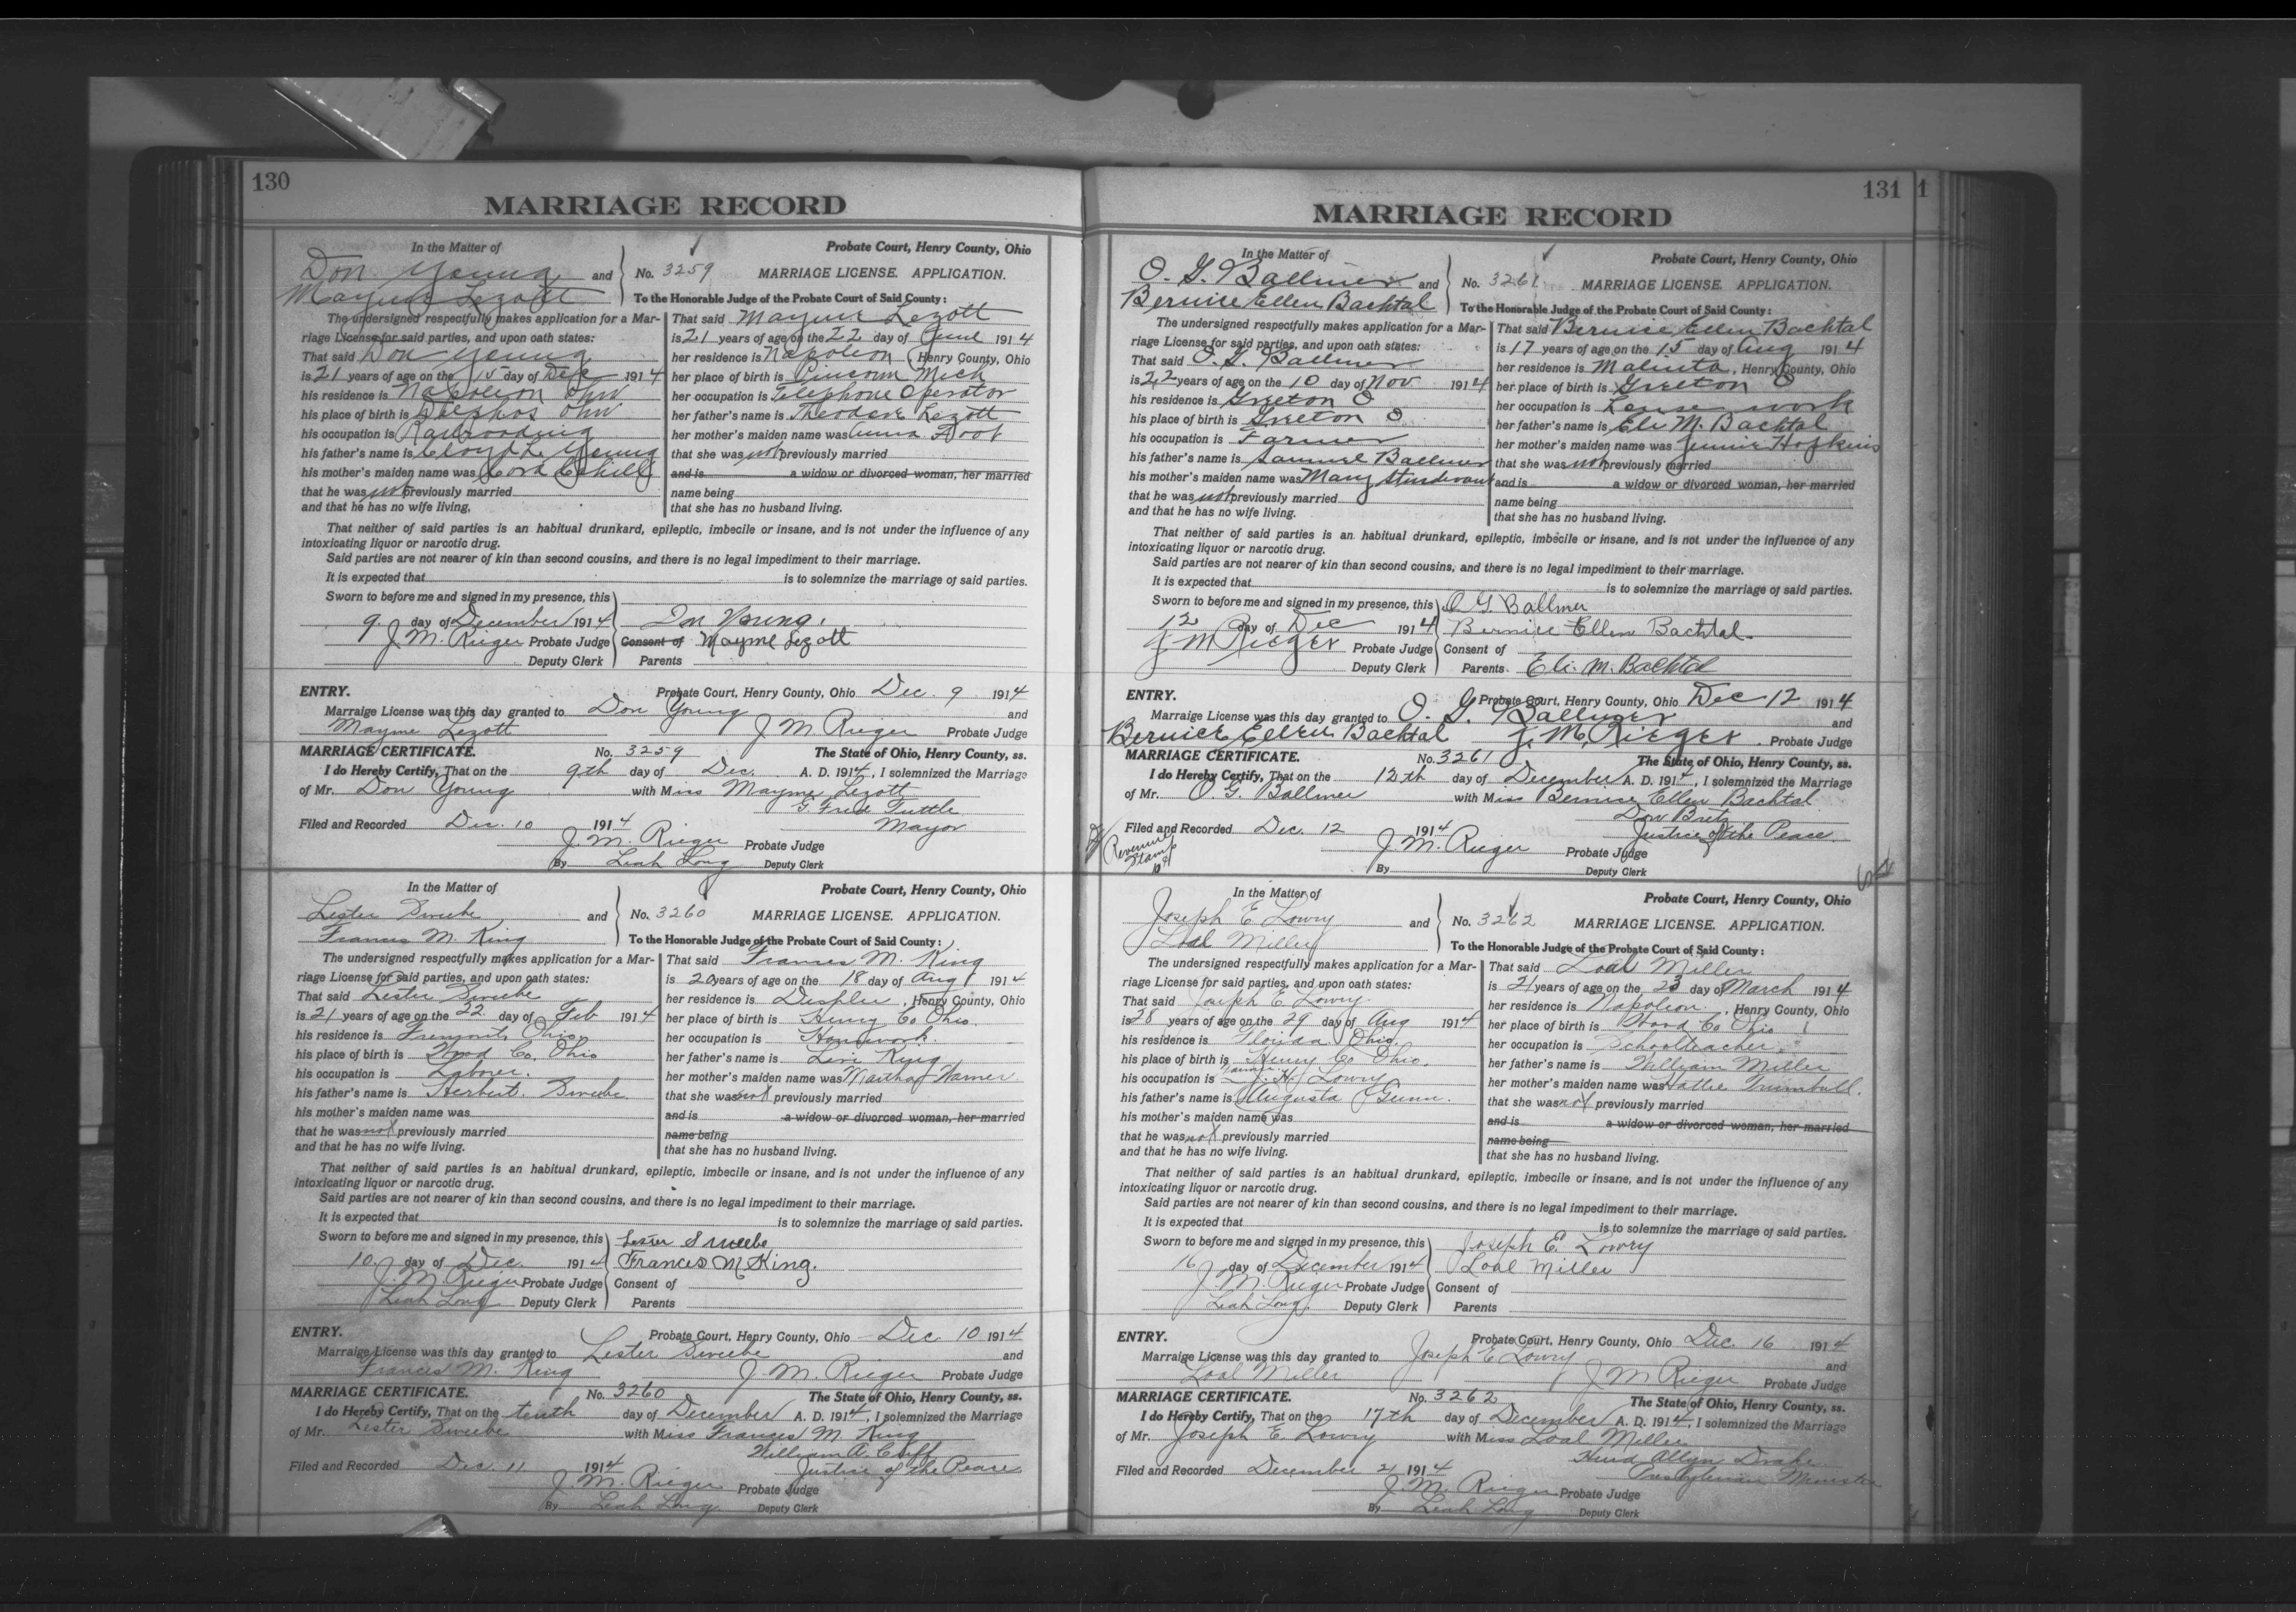 130
MARRIAGE RECORD
In the Matter of
Probate Court, Henry County, Ohio
Don Young and
No. 3259 MARRIAGE LICENSE. APPLICATION.
Mayme Lezott
To the Honorable Judge of the Probate Court of Said County:
The undersigned respectfully makes application for a Mar-
riage License for said parties, and upon oath states:
That said Don Young
is 21 years of age on the 15 day of Dec 1914
his residence is Napoleon Ohio
his place of birth is Delphos Ohio
his occupation is Railroading
his father's name is Cloyd L. Young
his mother's maiden name was Cora
that he was not previously married
and that he has no wife living.
That said Mayme Lezott
is 21 years of age on the 22 day of June 1914
her residence is Napoleon, Henry County, Ohio
her place of birth is Pinconn Mich
her occupation is Telephone Operator
her father's name is Theodore Lezott
her mother's maiden name was Anna Root
that she was not previously married
and is a widow or divorced woman, her married
name being
that she has no husband living.
That neither of said parties is an habitual drunkard, epileptic, imbecile or insane, and is not under the influence of any
intoxicating liquor or narcotic drug.
Said parties are not nearer of kin than second cousins, and there is no legal impediment to their marriage.
It is expected that is to solemnize the marriage of said parties.
Sworn to before me and signed in my presence, this
9 day of December 1914 Don Young.
J. M. Rieger Probate Judge Consent of Mayme Lezott
Deputy Clerk Parents
ENTRY. Probate Court, Henry County, Ohio Dec. 9 1914
Marraige License was this day granted to Don Young and
Mayme Lezott J M. Rieger Probate Judge
MARRIAGE CERTIFICATE. No. 3259 The State of Ohio, Henry County, ss.
I do Hereby Certify, That on the 9th day of Dec. A. D. 1914, I solemnized the Marriage
of Mr. Don Young with Miss Mayme Lezott
G. Fred Tuttle
Filed and Recorded Dec. 10 1914 Mayor
J. M. Rieger Probate Judge
By Leah Long Deputy Clerk
In the Matter of
Probate Court, Henry County, Ohio
Lester Sweebe and
No. 3260 MARRIAGE LICENSE. APPLICATION.
Frances M. King
To the Honorable Judge of the Probate Court of Said County:
The undersigned respectfully makes application for a Mar-
riage License for said parties, and upon oath states:
That said Lester Sweebe
is 21 years of age on the 22 day of Feb 1914
his residence is Fremont, Ohio
his place of birth is Wood Co. Ohio
his occupation is Laborer.
his father's name is Herbert Sweebe
his mother's maiden name was
that he was not previously married
and that he has no wife living.
That said Frances M. King
is 20 years of age on the 18 day of Aug 1914
her residence is Deshler, Henry County, Ohio
her place of birth is Henry Co Ohio.
her occupation is Housework.
her father's name is Levi King
her mother's maiden name was Martha Warner
that she was not previously married
and is a widow or divorced woman, her married
name being
that she has no husband living.
That neither of said parties is an habitual drunkard, epileptic, imbecile or insane, and is not under the influence of any
intoxicating liquor or narcotic drug.
Said parties are not nearer of kin than second cousins, and there is no legal impediment to their marriage.
It is expected that is to solemnize the marriage of said parties.
Sworn to before me and signed in my presence, this Lester Sweebe
10 day of Dec. 1914 Frances M King.
J. M. Rieger Probate Judge Consent of
Leah Long Deputy Clerk Parents
ENTRY. Probate Court, Henry County, Ohio Dec. 10 1914
Marraige License was this day granted to Lester Sweebe and
Frances M. King J. M. Rieger Probate Judge
MARRIAGE CERTIFICATE. No. 3260 The State of Ohio, Henry County, ss.
I do Hereby Certify, That on the tenth day of December A. D. 1914, I solemnized the Marriage
of Mr. Lester Sweebe with Miss Frances M. King
William A. Cuff
Filed and Recorded Dec. 11. 1914 Justice of the Peace
J. M. Rieger Probate Judge
By Leah Long Deputy Clerk
131 1
MARRIAGE RECORD
In the Matter of
Probate Court, Henry County, Ohio
O. G. Ballmer and
No. 3261 MARRIAGE LICENSE. APPLICATION.
Bernice Ellen Bachtal
To the Honorable Judge of the Probate Court of Said County:
The undersigned respectfully makes application for a Mar-
riage License for said parties, and upon oath states:
That said O. G. Ballmer
is 22 years of age on the 10 day of Nov 1914
his residence is Grelton O
his place of birth is Grelton O
his occupation is Farmer
his father's name is Samuel Ballmer
his mother's maiden name was Mary Sturdevant
that he was not previously married
and that he has no wife living.
That said Bernice Ellen Bachtal
is 17 years of age on the 15 day of Aug 1914
her residence is Malinta, Henry County, Ohio
her place of birth is Grelton O
her occupation is House work
her father's name is Eli M. Bachtal
her mother's maiden name was Jennie Hopkins
that she was not previously married
and is a widow or divorced woman, her married
name being
that she has no husband living.
That neither of said parties is an habitual drunkard, epileptic, imbecile or insane, and is not under the influence of any
intoxicating liquor or narcotic drug.
Said parties are not nearer of kin than second cousins, and there is no legal impediment to their marriage.
It is expected that is to solemnize the marriage of said parties.
Sworn to before me and signed in my presence, this O. G. Ballmer
12 day of Dec 1914 Bernice Ellen Bachtal
J M Rieger Probate Judge Consent of
Deputy Clerk Parents. Eli. M. Bachtal
ENTRY. Probate Court, Henry County, Ohio Dec 12 1914
Marraige License was this day granted to O. G. Ballmer and
Bernice Ellen Bachtal J. M. Rieger. Probate Judge
MARRIAGE CERTIFICATE. No. 3261 The State of Ohio, Henry County, ss.
I do Hereby Certify, That on the 12th day of December A. D. 1914, I solemnized the Marriage
of Mr. O. G. Ballmer with Miss Bernice Ellen Bachtal
Dow Bretz
Filed and Recorded Dec. 12 1914 Justice of the Peace.
Revenue
Stamp
10¢
J. M. Rieger Probate Judge
By Deputy Clerk
In the Matter of
Probate Court, Henry County, Ohio
Joseph E Lowry and
No. 3262 MARRIAGE LICENSE. APPLICATION.
Loal Miller
To the Honorable Judge of the Probate Court of Said County:
The undersigned respectfully makes application for a Mar-
riage License for said parties, and upon oath states:
That said Joseph E. Lowry.
is 28 years of age on the 29 day of Aug 1914
his residence is Florida Ohio.
his place of birth is Henry Co Ohio.
his occupation is Farmer J. H. Lowry
his father's name is Augusta Gunn.
his mother's maiden name was
that he was not previously married
and that he has no wife living.
That said Loal Miller
is 21 years of age on the 23 day of March 1914
her residence is Napoleon, Henry County, Ohio
her place of birth is Wood Co Ohio
her occupation is Schoolteacher
her father's name is William Miller
her mother's maiden name was Hattie Trumbull.
that she was not previously married
and is a widow or divorced woman, her married
name being
that she has no husband living.
That neither of said parties is an habitual drunkard, epileptic, imbecile or insane, and is not under the influence of any
intoxicating liquor or narcotic drug.
Said parties are not nearer of kin than second cousins, and there is no legal impediment to their marriage.
It is expected that is to solemnize the marriage of said parties.
Sworn to before me and signed in my presence, this Joseph E. Lowry
16 day of December 1914 Loal Miller
J. M. Rieger Probate Judge Consent of
Leah Long. Deputy Clerk Parents
ENTRY. Probate Court, Henry County, Ohio Dec. 16 1914
Marraige License was this day granted to Joseph E Lowry and
Loal Miller J M Rieger Probate Judge
MARRIAGE CERTIFICATE. No. 3262 The State of Ohio, Henry County, ss.
I do Hereby Certify, That on the 17th day of December A. D. 1914, I solemnized the Marriage
of Mr. Joseph E. Lowry with Miss Loal Miller
Allyn Drake
Filed and Recorded December 21 1914 Presbyterian Minister
J. M. Rieger Probate Judge
By Leah Long Deputy Clerk